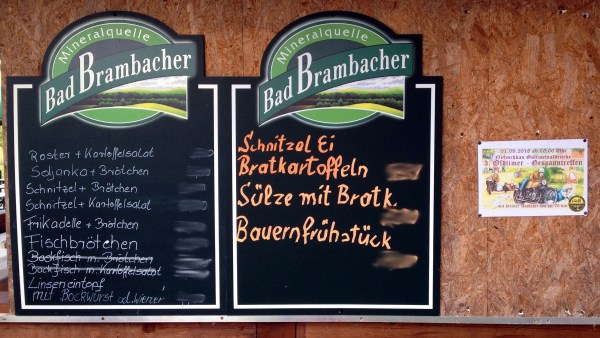 Mineralquelle
Bad Brambacher
Roster + Kartoffelsalat
Soljanka + Brötchen
Schnitzel + Brötchen
Schnitzel + Kartoffelsalat
Frikadelle + Brötchen
Fischbrötchen
Backfisch m. Brötchen
Backfisch m. Kartoffelsalat
Linseneintopf
mit Bockwurst od. Wiener
Mineralquelle
Bad Brambacher
Schnitzel Ei
Bratkartoffeln
Sülze mit Bratk.
Bauernfrühstück
Oldtimer - Gespanntreffen